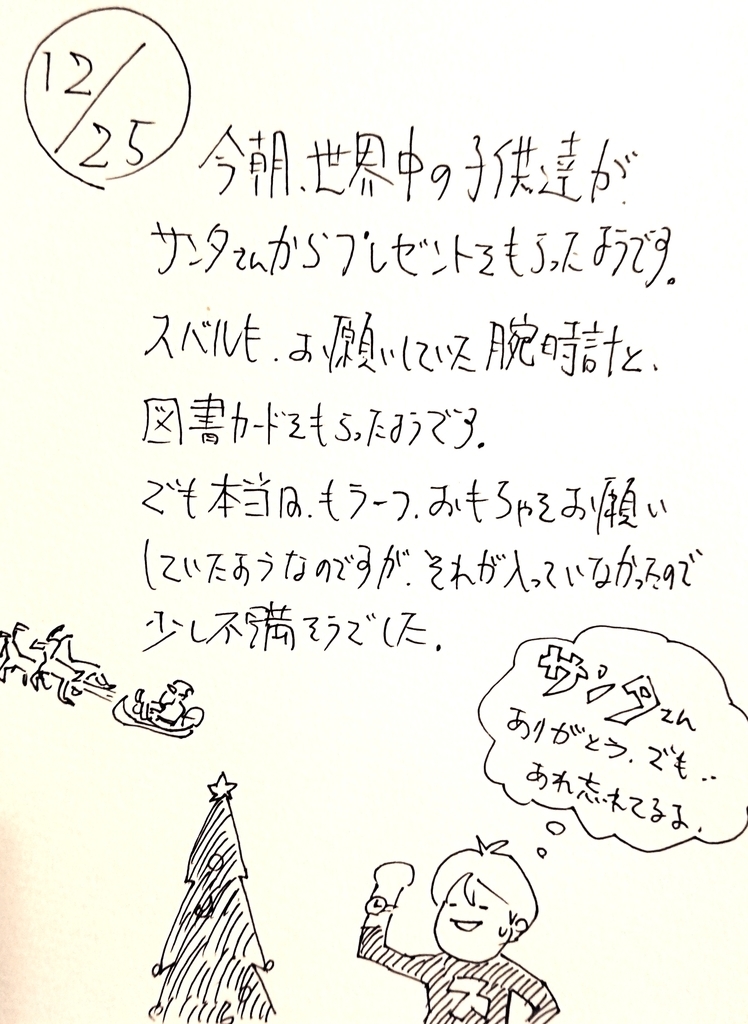 12/25
今朝、世界中の子供達が
サンタさんからプレゼントをもらったようです。
スバルも、お願いしていた腕時計と、
図書カードをもらったようです。
でも本当は、もう一つ、おもちゃをお願い
していたようなのですが、それが入っていなかったので
少し不満そうでした。
サンタさん
ありがとう、でも..
あれ忘れてるよ、
ス